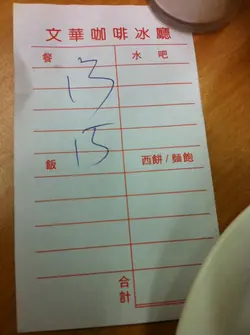 文華咖啡冰廳
餐 水吧
13
15
飯 西餅/麵飽
合計